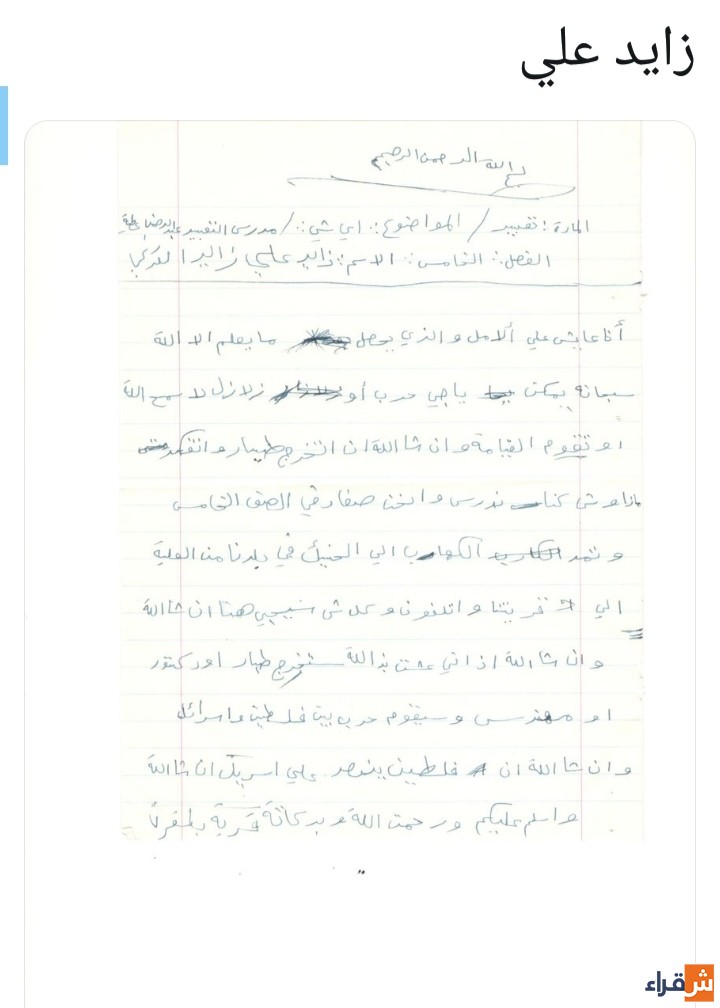 زايد علي
الله الرحمن الرحيم
المادة: تقبير / المواضوع: اي شي: / مدرس التقبير
الفصل: الخامس: الاسم: زايد علي زايد
أنا عايش علي ألامل والذي يحصل ما يعلم الا الله
سبحانه يمكن ياجي حرب أو زلازل لا سمح الله
او تقوم القيامة وان شا الله ان اتخرج طيار و
كنا ندرس وانحن صغار في الصف الخامس
و تمد الكهارب الي في بلدنا من العلية
الي قريتنا و اتلفونا و كلاش سيجي هنا ان شا الله
وان شا الله اذا ني عشت بذالله ستخرج طيار او دكتور
او مهندس وسيقوم حرب بين فلسطين واسرائل
وان شا الله ان فلسطين ينصر علي اسريئل ان شا الله
واسلم عليكم ورحمت الله وبركاتة قرية
شقراء